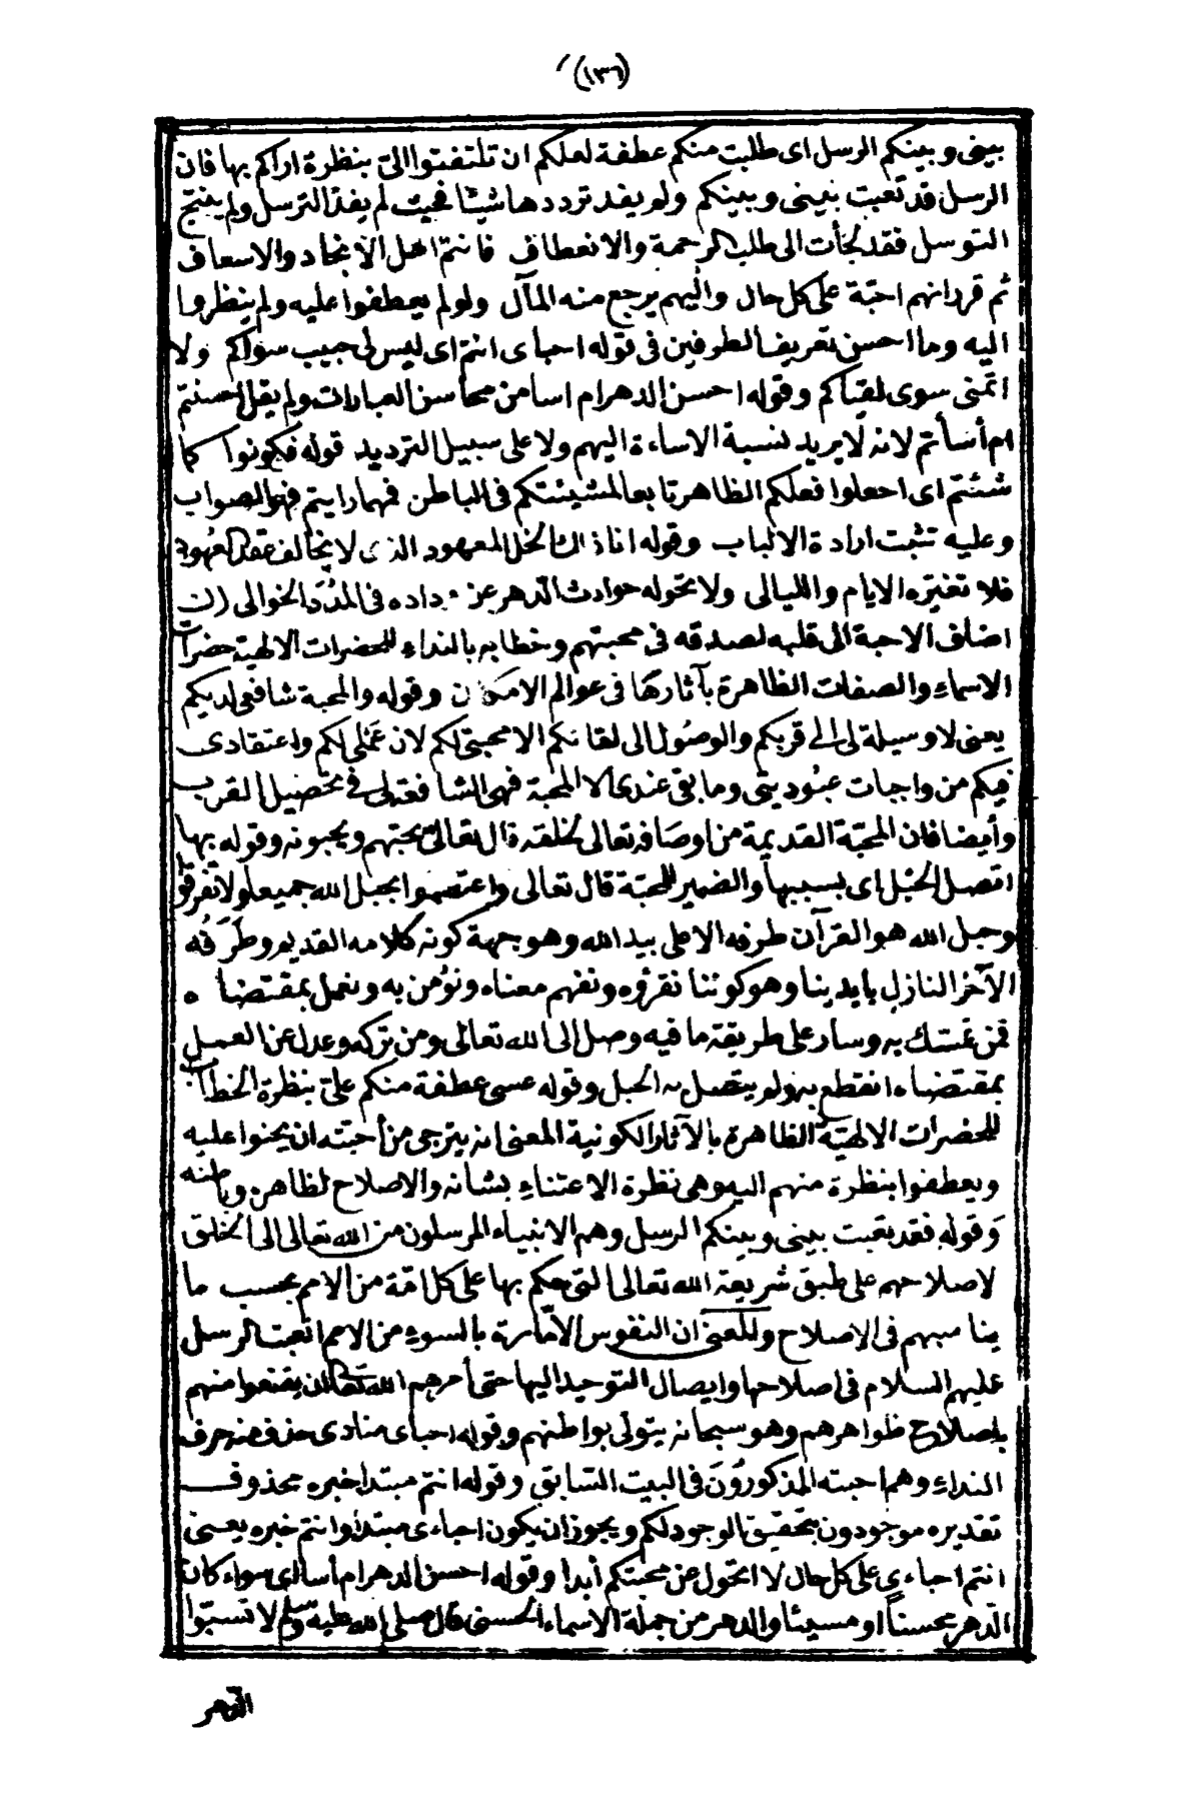 (١٣٦)
بينى وبينكم الرسل اى طلبت منكم عطفة لعلكم ان تلتفتوا الىّ بنظرة اراكم بها فان
الرسل قد تعبت بينى وبينكم ولو يفد ترددها شيئا فحيث لم يفد الترسل ولم ينتج
التوسل فقد لجأت الى طلب الرحمة والانعطاف فانتم اهل الانجاد والاسعاف
ثم قرر انهم احبة على كل حال واليهم يرجع منه المآل ولو لم يعطفوا عليه ولم ينظروا
اليه وما احسن تعريف الطرفين فى قوله احباى انتم اى ليس لى حبيب سواكم ولا
اتمنى سوى لقياكم وقوله احسن الدهر ام اسا من محاسن العبارات ولم يقل احسنتم
ام أسأتم لانه لا يريد نسبة الاساءة اليهم ولا على سبيل الترديد قوله فكونوا كما
شئتم اى اجعلوا فعلكم الظاهر تابعا لمشيئتكم فى الباطن فمهما رايتم فهو الصواب
وعليه تثبت ارادة الالباب وقوله انا ذاك الخل المعهود الذى لا يخالف عقد العهود
فلا تغيّره الايام والليالى ولا تحوله حوادث الدهر عن وداده فى المدد الخوالى
اضاف الاحبة الى قلبه لصدقه فى محبتهم وخطابه بالنداء للحضرات الالهية حضرات
الاسماء والصفات الظاهرة بآثارها فى عوالم الامكان وقوله والمحبة شافعى لديكم
يعنى لا وسيلة لى الى قربكم والوصول الى لقائكم الا محبتى لكم لان عملى لكم واعتقادى
فيكم من واجبات عبوديتى وما بقى عندى الا المحبة فهى الشافعة لى فى تحصيل القرب
وأيضا فان المحبّة القديمة من اوصافه تعالى لخلقه قال تعالى يحبّهم ويحبونه وقوله بها
اتصل الحبل اى بسببها والضمير للمحبّة قال تعالى واعتصموا بحبل الله جميعا ولا تفرقوا
وحبل الله هو القرآن طرفه الاعلى بيد الله وهو جهة كونه كلامه القديم وطرَفُه
الآخر النازل بايدينا وهو كوننا نقرؤه ونفهم معناه ونؤمن به ونعمل بمقتضاه
فمن تمسّك به وسار على طريقة ما فيه وصل الى الله تعالى ومن تركه وعدل عن العمل
بمقتضاه انقطع به ولم يتصل به الحبل وقوله عسى عطفة منكم علىّ بنظرة الخطاب
للحضرات الالهيّة الظاهرة بالآثار الكونية المعنى انه يترجى من أحبّته ان يحنوا عليه
ويعطفوا بنظرة منهم اليه وهى نظرة الاعتناء بشانه والاصلاح لظاهره وباطنه
وقوله فقد تعبت بينى وبينكم الرسل وهم الانبياء المرسلون من الله تعالى الى الخلق
لاصلاحهم على طبق شريعة الله تعالى التى حكم بها على كل امّة من الامم بحسب ما
يناسبهم فى الاصلاح والمعنى ان النفوس الامّارة بالسوء من الامم اتعبت الرسل
عليهم السلام فى اصلاحها وايصال التوحيد اليها حتى أمرهم الله تعالى ان يقنعوا منهم
باصلاح ظواهرهم وهو سبحانه يتولى بواطنهم وقوله احباى منادى حذف منه حرف
النداء وهم احبته المذكورون فى البيت السابق وقوله انتم مبتدا خبره محذوف
تقديره موجودون بتحقيق الوجود لكم ويجوز ان يكون احباءى مبتدأ وانتم خبره يعنى
انتم احباءى على كل حال لا اتحول عن محبتكم أبدا وقوله احسن الدهر ام أسا اى سواء كان
الدهر محسناً او مسيئا والدهر من جملة الاسماء الحسنى قال صلى الله عليه وسلم لا تسبّوا
الدهر